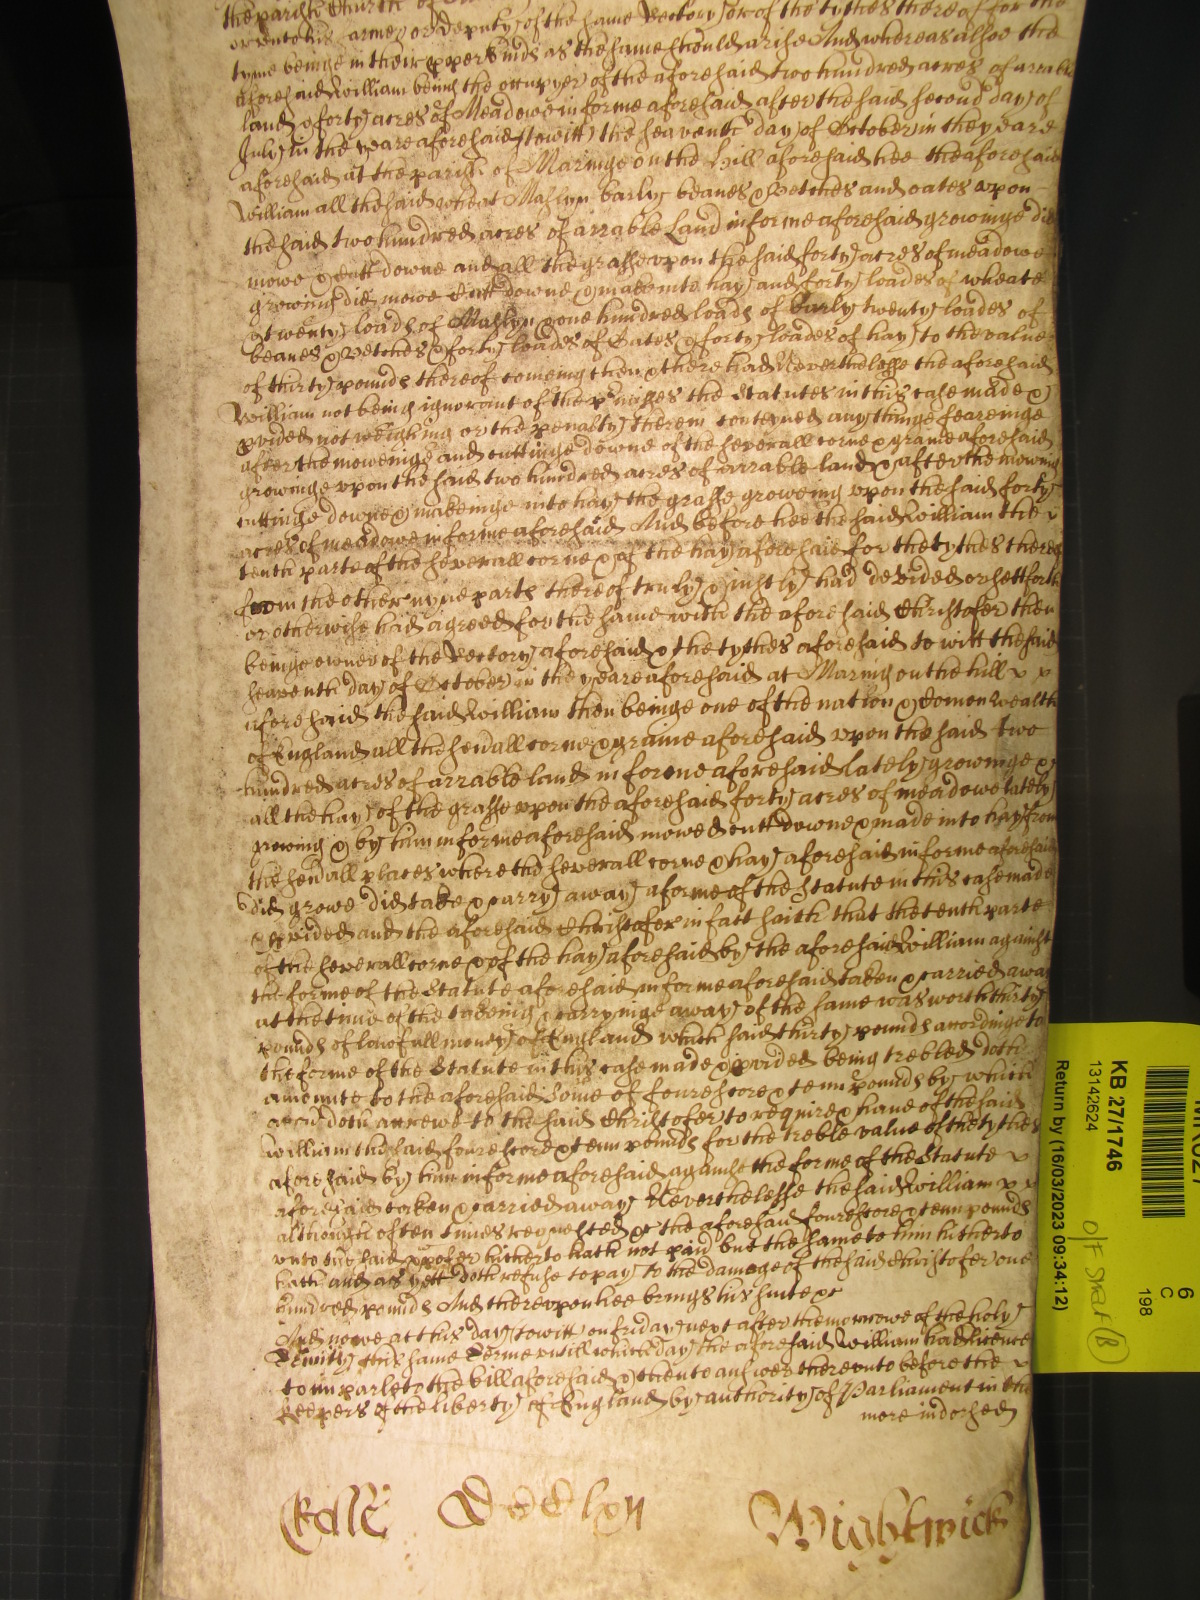 the parish Church of
or unto his farmer or deputy of the same Rectory or of the tythes thereof for the
tyme beinge in their pper kinds as the same should arise And whereas alsoe the
aforesaid William being the occupyer of the aforesaid two hundred acres of arrable
land & forty acres of Meadowe in forme aforesaid after the said second day of
July in the yeare aforesaid (to witt) the seaventh day of October in the yeare
aforesaid at the parish of Maringe on the Hill aforesaid hee the aforesaid
William all the said wheat Maslyn barly beanes & Petches and oates upon
the said two hundred acres of arrable Land in forme aforesaid growinge did
mowe & cutt downe and all the grasse upon the said forty acres of meadowe
growing did mowe & cutt downe & make into hay and forty loades of wheate
& twenty loads of Maslyn & one hundred loads of barly twenty loades of
beanes & Petches & forty loades of Oates & forty loades of hay to the value
of thirty pounds thereof comeing then & there had Neverthelesse the aforesaid
William not being ignorant of the pmisses the Statutes in this case made &
pvided not weighing or the penalty therein conteyned any thinge feareinge
after the moweinge and cuttinge downe of the severall corne & graine aforesaid
growinge upon the said two hundred acres of arrable land & after the mowing
cuttinge downe & makeinge into hay the grasse groweing upon the said forty
acres of meadowe in forme aforesaid And before hee the said William the
tenth parte of the severall corne & of the hay aforesaid for the tythes thereof
from the other nyne parts thereof truly & justly had devided or sett forth
or otherwise had agreed for the same with the aforesaid Christofer then
beinge owner of the Rectory aforesaid & the tythes aforesaid to witt the said
seaventh day of October in the yeare aforesaid at Maring on the hill
aforesaid the said William then beinge one of the nation & Comonwealth
of England all the sevall corne & graine aforesaid upon the said two
hundred acres of arrable land in forme aforesaid lately growinge &
all the hay of the grasse upon the aforesaid forty acres of meadowe lately
growing & by him in forme aforesaid mowed cutt downe & made into hay from
the sevall places where the severall corne & hay aforesaid in forme aforesaid
did growe did take & carry away aforme of the Statute in this case made
& pvided and the aforesaid Christofer in fact saith that the tenth parte
of the severall corne & of the hay aforesaid by the aforesaid William against
the forme of the Statute aforesaid in forme aforesaid taken & carried away
at the time of the takeing & carryinge away of the same was worth thirty
pounds of lawfull money of England which said thirty pounds accordinge to
the forme of the Statute in this case made & pvided being trebled doth
amounte to the aforesaid some of fourescore & tenn pounds by which
accon doth accrewe to the said Christofer to require & have of the said
William the said fourescore & tenn pounds for the treble value of the tythes
aforesaid by him in forme aforesaid againste the forme of the Statute
aforesaid taken & carried away Neverthelesse the said William
although often times requested &c the aforesaid fourescore & tenn pounds
unto the said Xpofer hitherto hath not paid but the same to him hitherto
hath and as yett doth refuse to pay to the damage of the said Christofer one
hundred pounds And thereupon hee brings his suite &c
And nowe at this day (to witt) on friday next after the morrowe of the holy
Trinity this same Terme untill which day the aforesaid William had licence
to imparle to the bill aforesaid & then to answer thereunto before the
keepers of the liberty of England by authority of Parliament in the
more indorsed
Wightwick
KB 27/1746
13142624
Return by (16/03/2023 09:34:12)
6
C
198